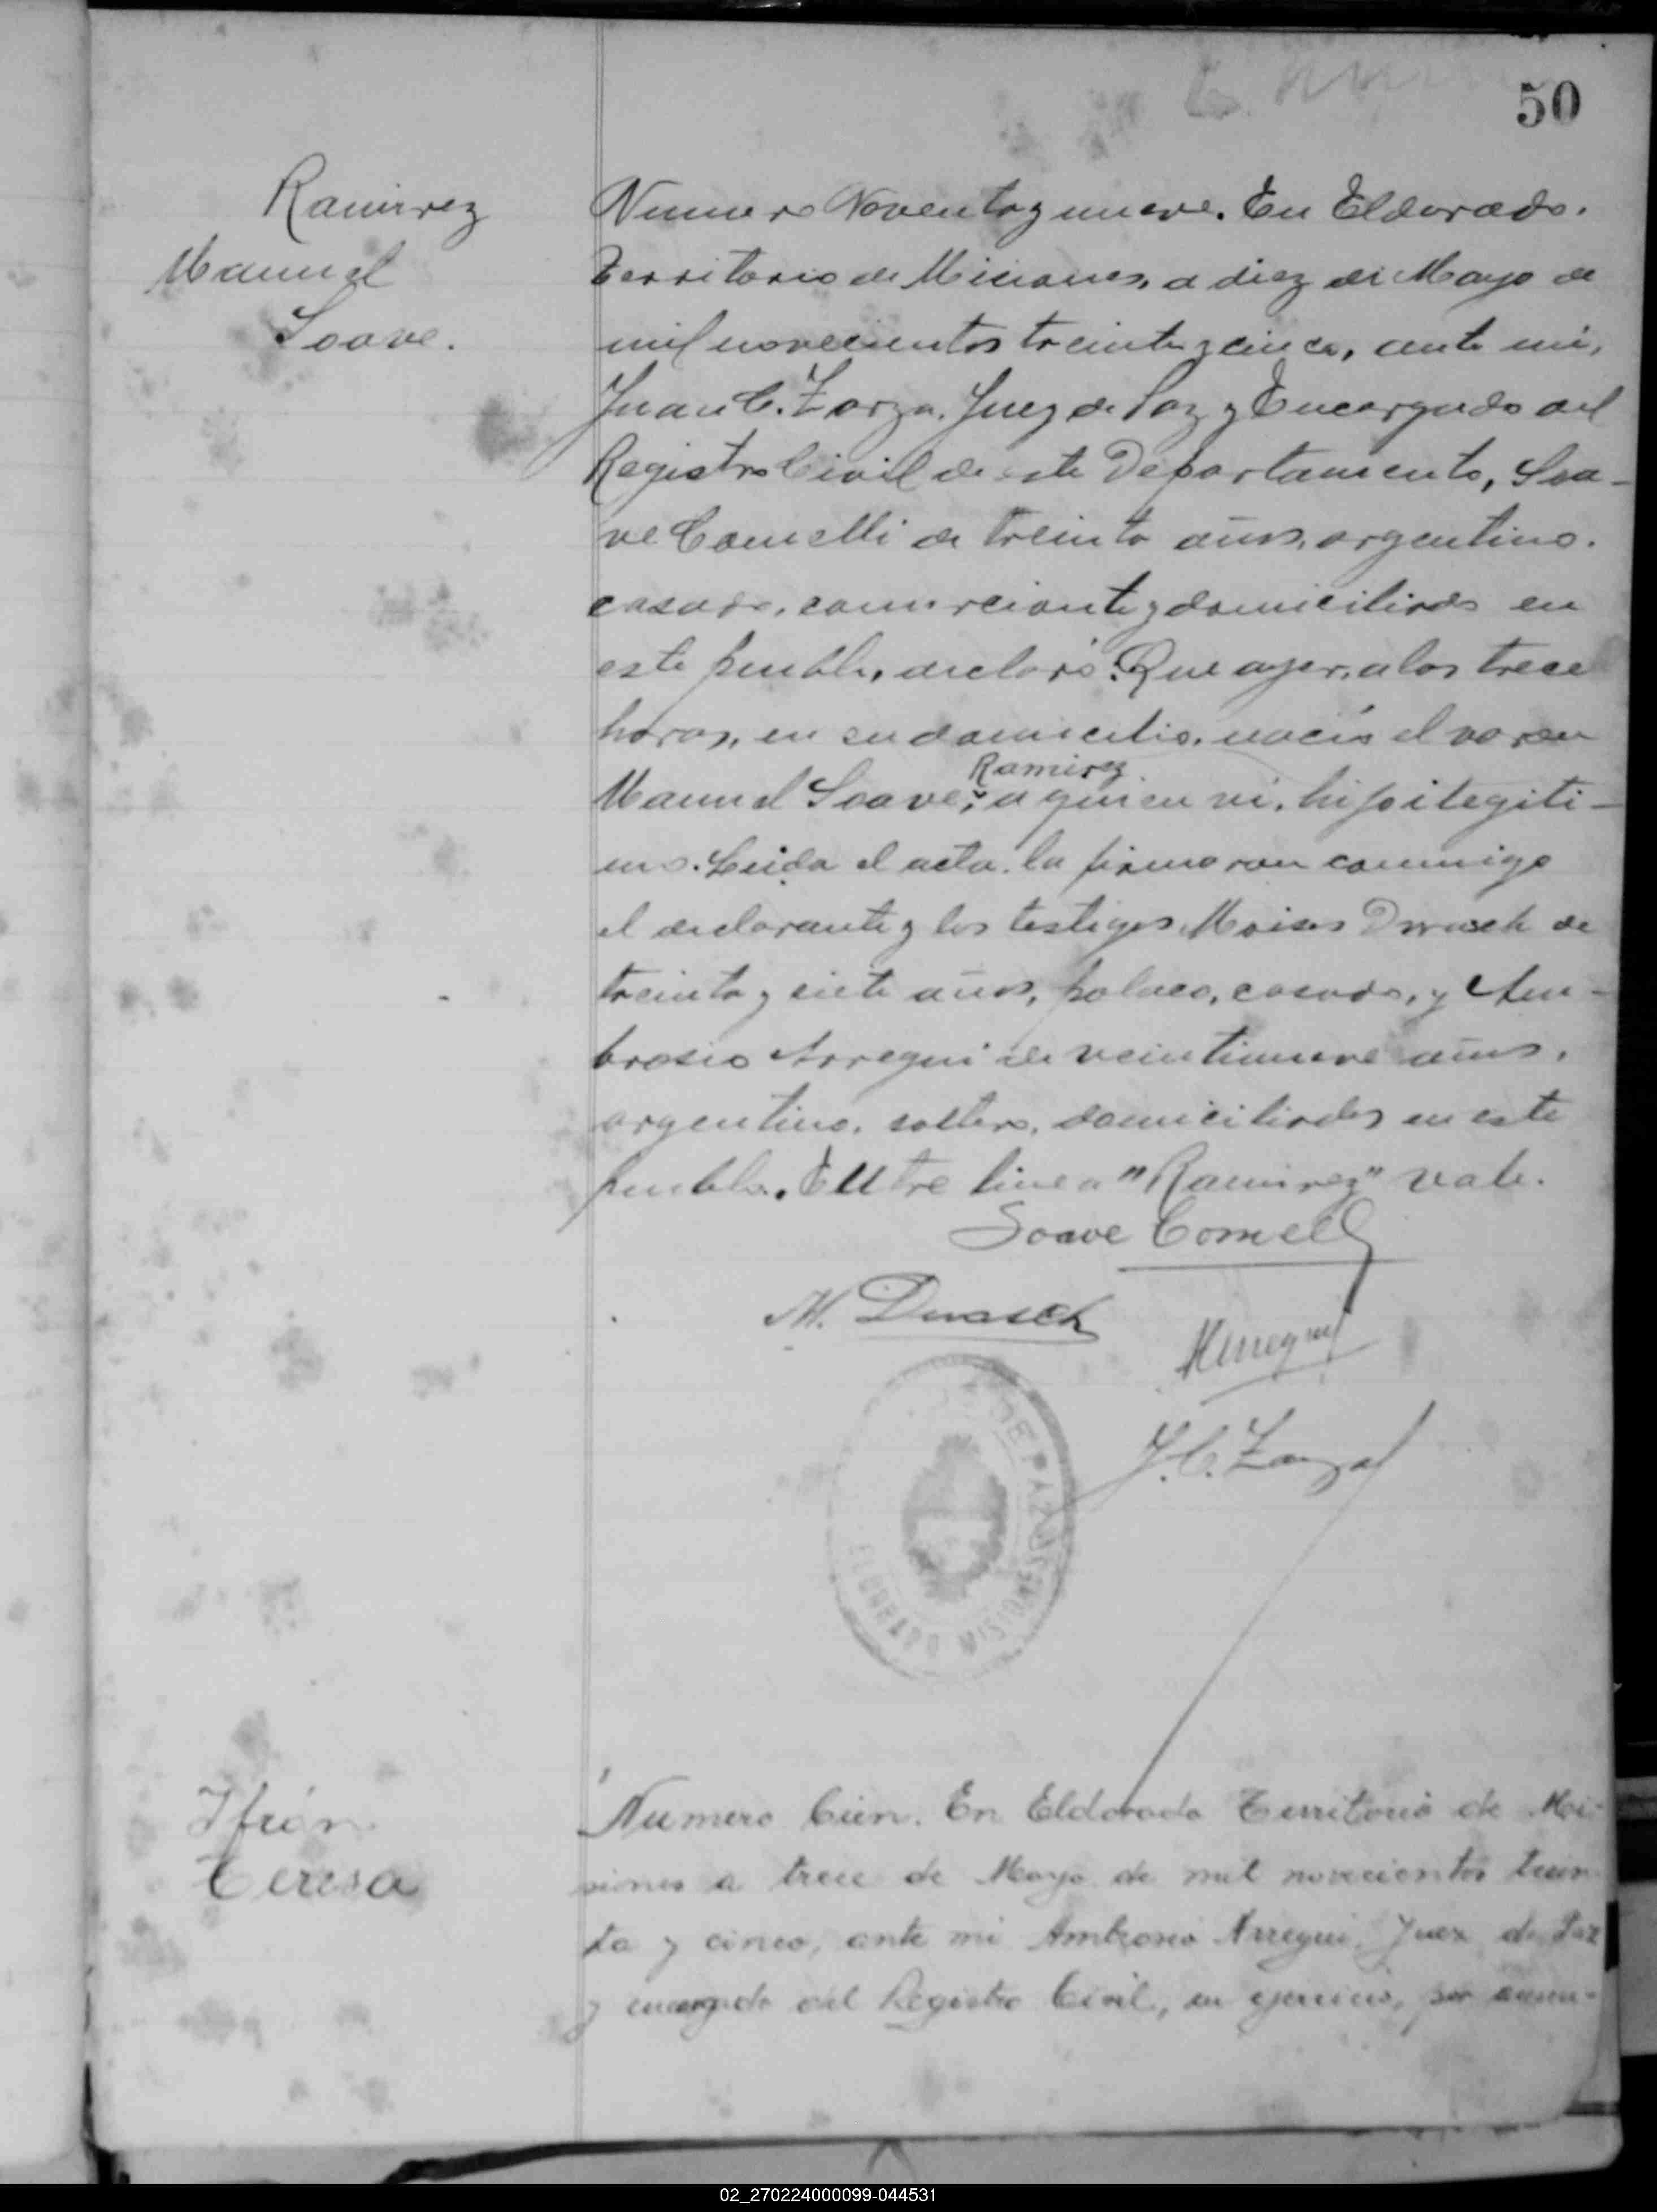 50
Ramirez
Manuel
Soave.
Numero Noventa y nueve. En Eldorado.
Territorio de Misiones, a diez de Mayo de
mil novecientos treinta y cinco, ante mi,
Juan C. Zarza, Juez de Paz y Encargado del
Registro Civil de este Departamento, Soa-
ve Comelli de treinta años, argentino.
casado, comerciante y domiciliado en
este pueblo, declaró: Que ayer, a las trece
horas, en su domicilio, nació el varon
Ramirez
Manuel Soave, a quien vi, hijo ilegiti-
mo. Leida el acta, la firmaron conmigo
el declarante y los testigos Moises Dwasch de
treinta y siete años, polaco, casado, y Am-
brosio Arregui de veintinueve años,
argentino, soltero, domiciliados en este
pueblo. Entre linea "Ramirez" vale.
Soave Comelli
M. Dwasch
Arregui
J. C. Zarza
DE PAZ
ELDORADO MISIONES
Ifrán
Teresa
Numero Cien. En Eldorado Territorio de Mi-
siones a trece de Mayo de mil novecientos trein
ta y cinco, ante mi Ambrosio Arregui, Juez de Paz
y encargado del Registro Civil, en ejercicio, por ausen-
02_270224000099-044531